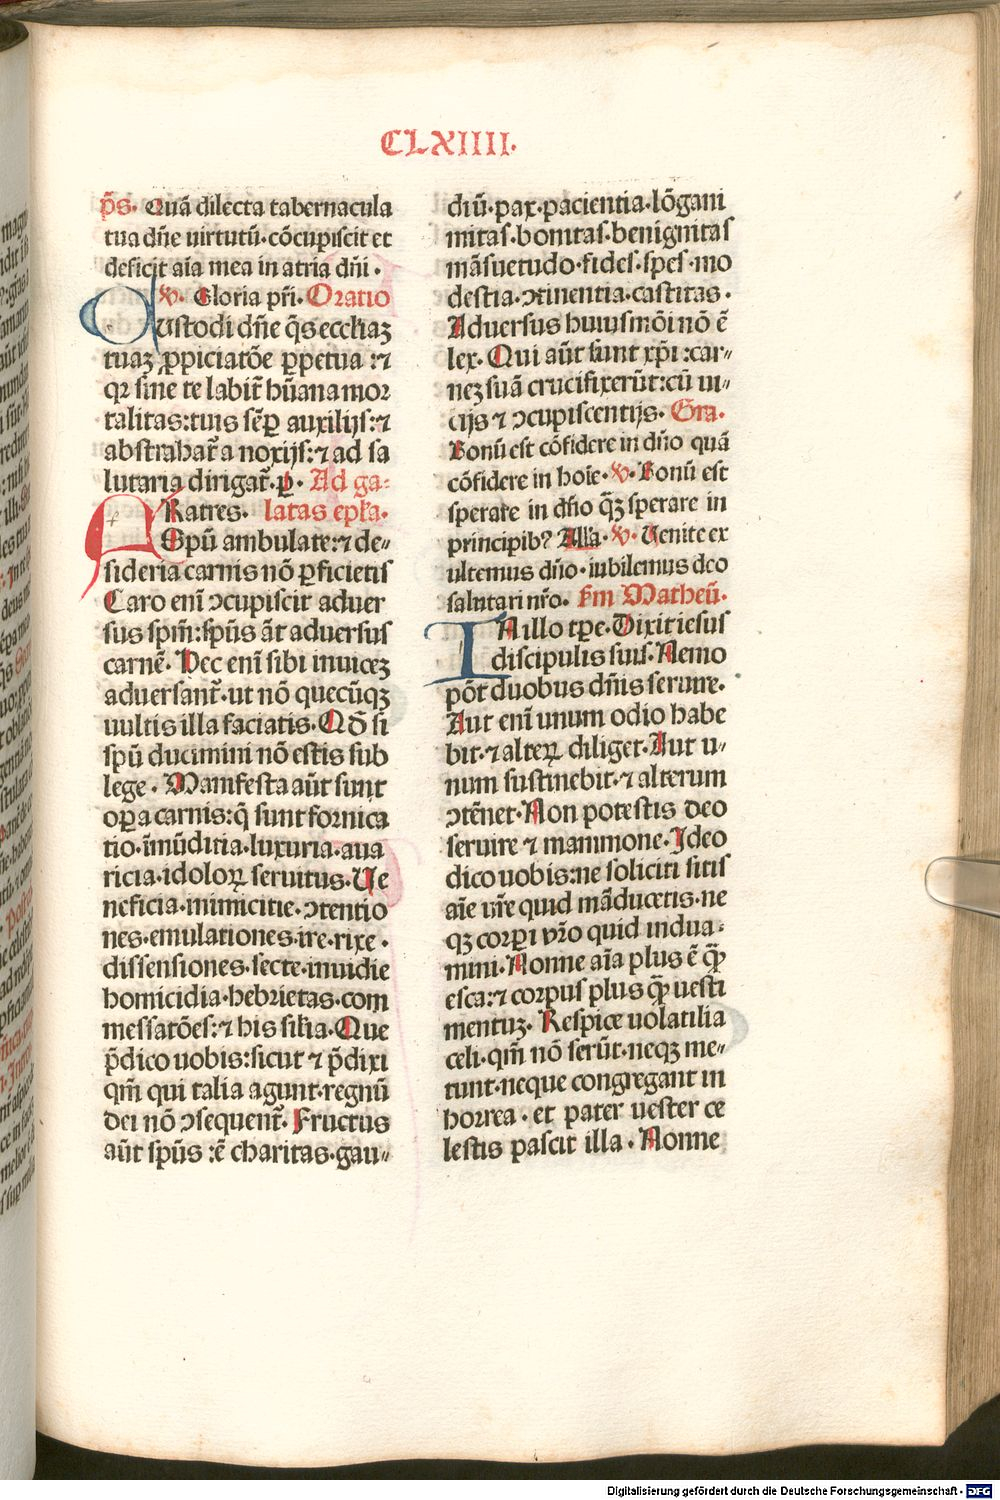 CLXIIII.
p̃s. Quã dilecta tabernacula
tua dñe uirtutũ·cõcupiscit et
deficit aĩa mea in atria dñi·
℣. Gloria pr̃i. Oratio
Custodi dñe q̃s eccłiaꝫ
tuaꝫ ꝓpiciatõe ꝑpetua:⁊
qr sine te labit̃ hũana mor
talitas:tuis sẽꝑ auxilijs:⁊
abstrahat̃ a noxijs:⁊ ad sa
lutaria dirigat̃.ꝑ. Ad ga⸗
FRatres. latas epła.
Spũ ambulate:⁊ de⸗
sideria carnis nõ ꝑficietis
Caro enĩ ↄcupiscit aduer
sus spm̃:spũs ãt aduersus
carnẽ. Hec enĩ sibi inuiceꝫ
aduersant̃·ut nõ quecũqꝫ
uultis illa faciatis. Qđ si
spũ ducimini nõ estis sub
lege. Manifesta aũt sunt
oꝑa carnis:q̃ sunt fornica
tio·ĩmũditia·luxuria·aua
ricia·idoloꝝ seruitus. Ue
neficia·inimicitie·ↄtentio
nes·emulationes·ire·rixe·
dissensiones·secte·inuidie
homicidia·hebrietas·com
messatões:⁊ his silia. Que
p̃dico uobis:sicut ⁊ p̃dixi
qm̃ qui talia agunt·regnũ
dei nõ ↄsequent̃. Fructus
aũt spũs:ẽ charitas·gau⸗
diũ·pax·pacientia·lõgani
mitas·bonitas·benignitas
mãsuetudo·fides·spes·mo
destia·ↄtinentia·castitas.
Aduersus huiusmõi nõ ẽ
lex. Qui aũt sunt xp̃i:car⸗
neꝫ suã crucifixerũt:cũ ui⸗
cijs ⁊ ↄcupiscentijs. Gra.
Bonũ est cõfidere in dño quã
cõfidere in hoĩe. ℣. Bonũ est
sperare in dño q̃ꝫ sperare in
principibꝰ Alła. ℣. Uenite ex
ultemus dño·iubilemus deo
salutari nr̃o. s̃m Matheũ.
IN illo tꝑe. Dixit iesus
discipulis suis. Nemo
põt duobus dñis seruire.
Aut enĩ unum odio habe
bit·⁊ alteꝝ diliget. Aut u⸗
num sustinebit·⁊ alterum
ↄtẽnet. Non potestis deo
seruire ⁊ mammone. Ideo
dico uobis:ne soliciti sitis
aĩe ur̃e quid mãducetis·ne
qꝫ corꝑi vr̃o quid indua⸗
mini. Nonne aĩa plus ẽ q̃ꝫ
esca:⁊ corpus plus q̃ꝫ uesti
mentuꝫ. Respice uolatilia
celi·qm̃ nõ serũt·neqꝫ me⸗
tunt·neque congregant in
horrea·et pater uester ce
lestis pascit illa. Nonne
Digitalisierung gefördert durch die Deutsche Forschungsgemeinschaft - DFG